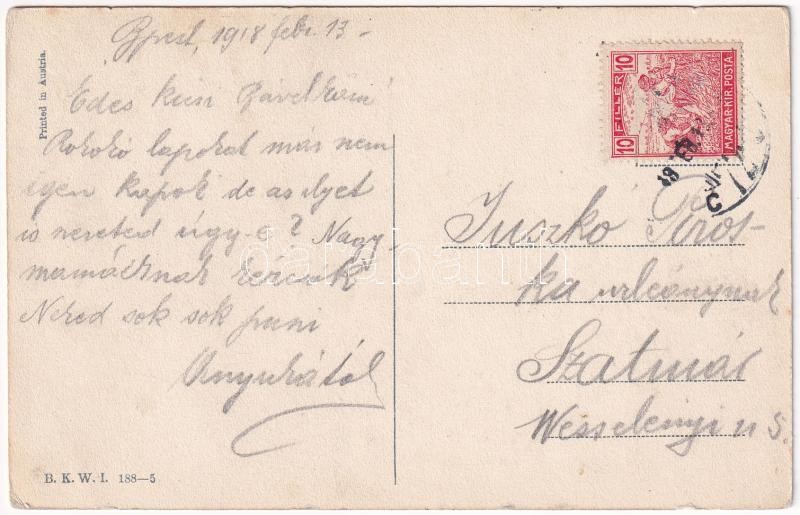 Bpest, 1918 febr. 13-
Printed in Austria.
Edes kicsi
Rokokó lapokat már nem
igen kapok de az ilyet
is szereted úgy-e? Nagy-
mamáéknak kézcsók
Neked sok sok puszi
Anyukától
B. K. W. I. 188—5
10 FILLÉR 10
MAGYAR·KIR·POSTA
Juszkó Piros-
ka urleánynak
Szatmár
Wesselényi u 5.
darabanth